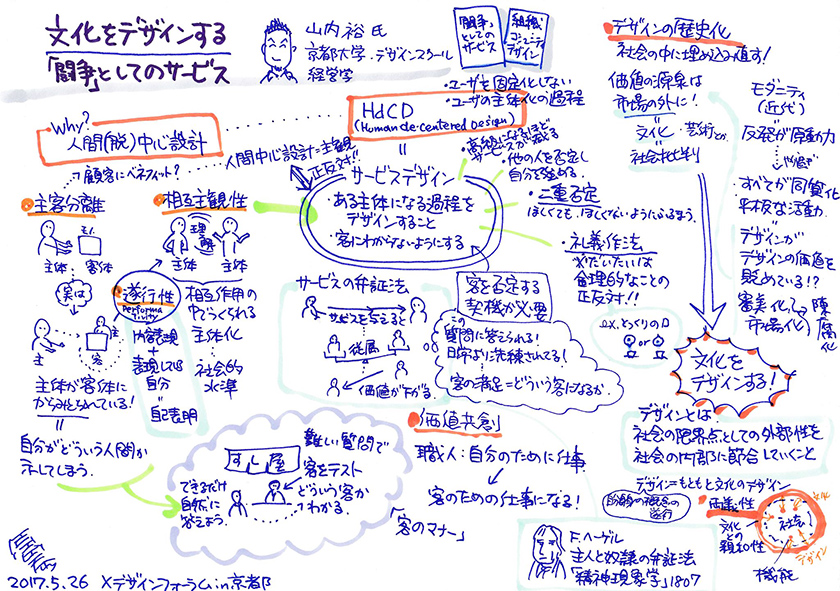 文化をデザインする
「闘争」としてのサービス
山内 裕 氏
京都大学・デザインスクール
経営学
「闘争」
としての
サービス
組織・
コミュニティ
デザイン
・ユーザを固定化しない
・ユーザの主体化の過程
Why?
人間(脱)中心設計
HdCD
(Human de-centered Design)
=
人間中心設計=主観
正反対!!
→顧客にベネフィット?
・高級になるほど
サービスが減る
・他の人を否定し
自分を高める
サービスデザイン
・ある主体になる過程を
デザインすること
・客に分からないようにする
・二重否定
ほしくても、ほしくないようにふるまう。
・礼義作法
×だいたいは
倫理的なことの
正反対!!
主客分離
もの
主体
客体
実は
主
客
主体が客体に
からめとられている!
=
自分がどういう人間か
示してしまう。
相互主観性
理解
主体
主体
遂行性
Performativity
内容表現
+
表現している
自分
=
自己表明
相互作用の
中でつくられる
主体化
社会的
水準
サービスの弁証法
サービスを与えると
従属
価値が下がる。
客を否定する
契機が必要
この
質問に答えられる!
日常より洗練されてる!
客の満足=どういう客になるか
ex. とっくりの口
or
すし屋
難しい質問で
客をテスト
どういう客か
わかる。
できるだけ
自然に
答えよう。
価値共創
職人:自分のために仕事
客のための仕事になる!
「客のマナー」
F.ヘーゲル
主人と奴隷の弁証法
「精神現象学」1807
デザインの歴史化
社会の中に埋め込み直す!
価値の源泉は
市場の外に!
=
文化・芸術とか
=
社会批判
モダニティ
(近代)
反発が原動力
すべてが同質化
平板な活動
デザインが
デザインの価値を
貶めている!?
審美化
市場化
陳腐化
文化を
デザインする!
デザインとは
社会の限界点としての外部性を
社会の内部に節合していくこと
デザイン=もともと文化のデザイン
両義性
文化
との
親和性
社会
文化
デザイン
機能
2017.5.26 Xデザインフォーラム in 京都